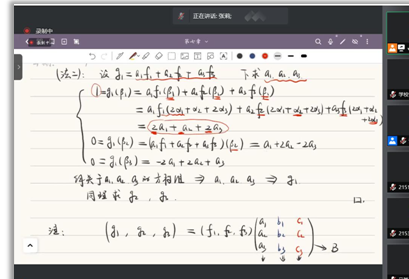 正在讲话: 张巍;
录制中
第七章
(法二): 设 g₁ = a₁f₁ + a₂f₂ + a₃f₃ 下求 a₁, a₂, a₃
1 = g₁(β₁) = a₁f₁(β₁) + a₂f₂(β₁) + a₃f₃(β₁)
= a₁f₁(2α₁+α₂+2α₃) + a₂f₂(2α₁+α₂+2α₃) + a₃f₃(2α₁+α₂+2α₃)
= 2a₁ + a₂ + 2a₃
0 = g₁(β₂) = (a₁f₁ + a₂f₂ + a₃f₃)(β₂) = a₁ + 2a₂ - 2a₃
0 = g₁(β₃) = -2a₁ + 2a₂ + a₃
得关于 a₁, a₂, a₃ 的方程组 ⇒ a₁, a₂, a₃ ⇒ g₁.
同理求 g₂, g₃. □.
注: (g₁, g₂, g₃) = (f₁, f₂, f₃)
a₁ b₁ c₁
a₂ b₂ c₂
a₃ b₃ c₃ → B